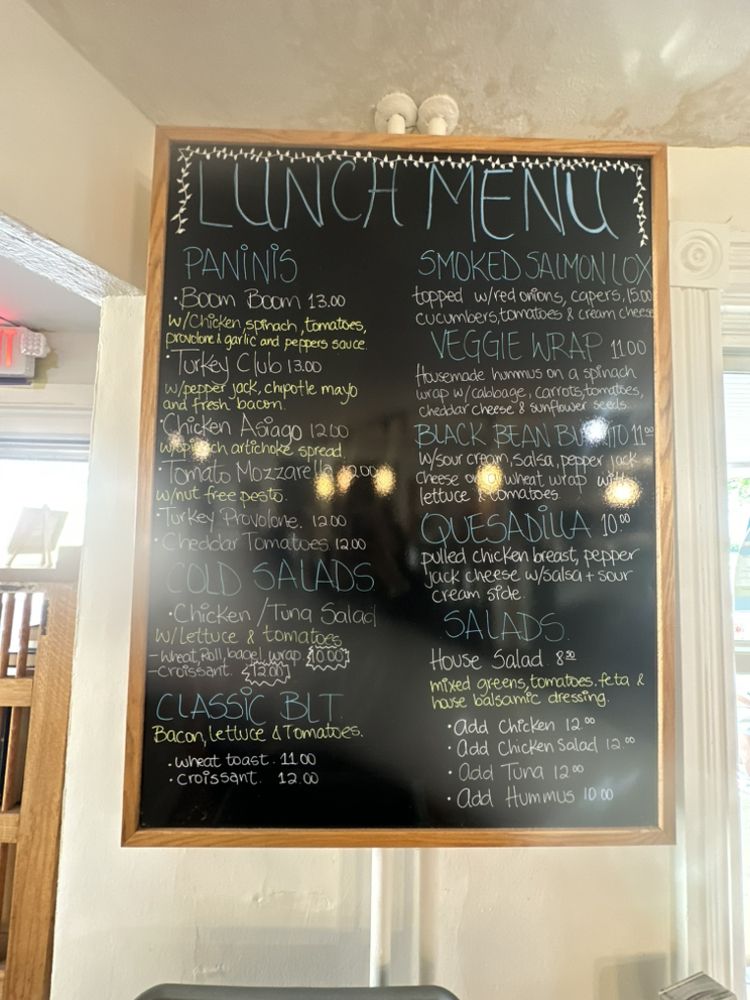 LUNCH MENU
PANINIS
• Boom Boom 13.00
w/Chicken, spinach, tomatoes,
provolone & garlic and peppers sauce.
• Turkey Club 13.00
w/pepper jack, chipotle mayo
and fresh bacon.
• Chicken Asiago 12.00
w/spinach artichoke spread
• Tomato Mozzarella 12.00
w/nut free pesto.
• Turkey Provolone. 12.00
• Cheddar Tomatoes 12.00
COLD SALADS
• Chicken / Tuna Salad
w/lettuce & tomatoes
- wheat, Roll, bagel, wrap 10.00
- Croissant. 12.00
CLASSIC BLT.
Bacon, lettuce & Tomatoes.
• wheat toast. 11.00
• croissant. 12.00
SMOKED SALMON LOX
topped w/red onions, capers, 15.00
cucumbers, tomatoes & cream cheese
VEGGIE WRAP 11.00
Housemade hummus on a spinach
wrap w/cabbage, carrots, tomatoes,
cheddar cheese & sunflower seeds.
BLACK BEAN BURRITO 11.00
w/sour cream, salsa, pepper jack
cheese on wheat wrap with
lettuce & tomatoes.
QUESADILLA 10.00
pulled chicken breast, pepper
jack cheese w/salsa + sour
cream side.
SALADS.
House Salad. 8.50
mixed greens, tomatoes. feta &
house balsamic dressing.
• Add Chicken 12.00
• Add Chicken Salad 12.00
• Add Tuna 12.00
• Add Hummus 10.00